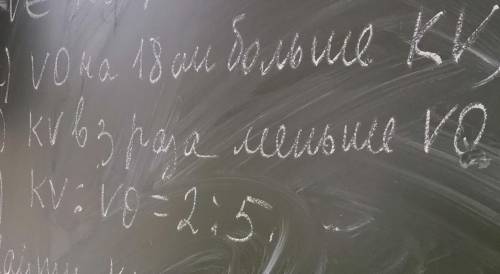 ) VO на 18 см больше KV,
) KV в 3 раза меньше VO
) KV : VO = 2 : 5.